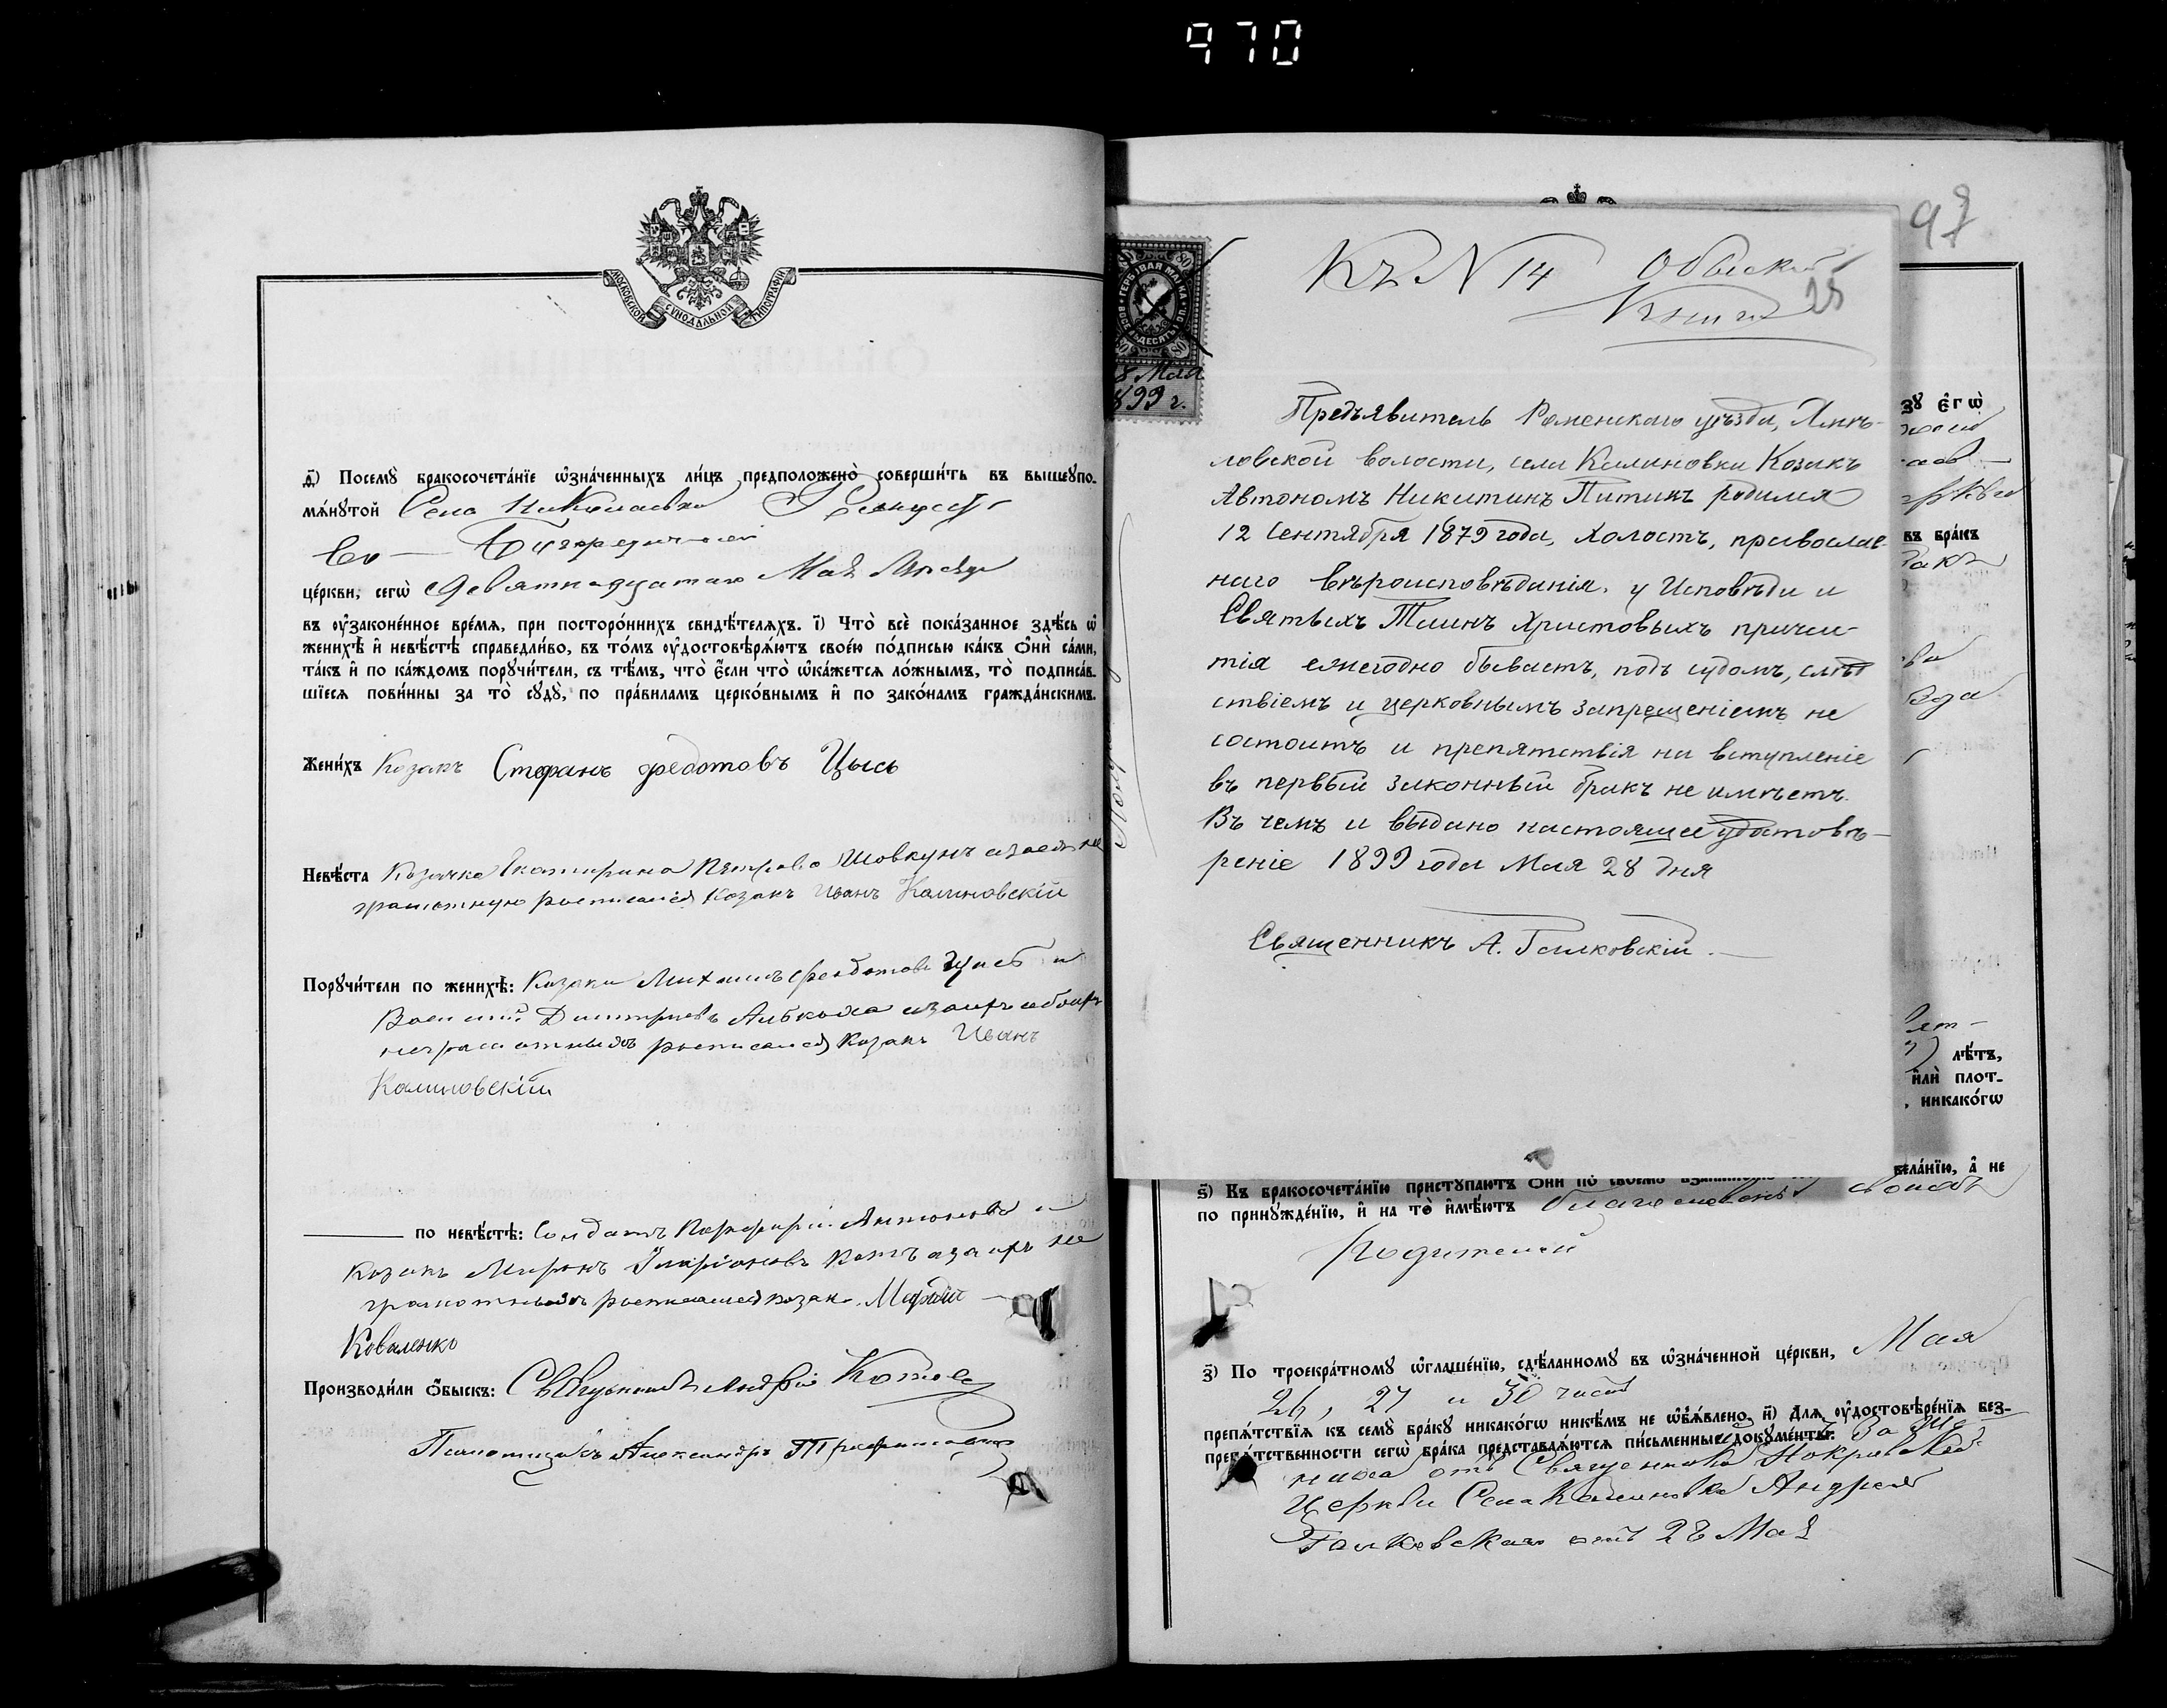 970
МОСКОВСКОЙ СѴНОДАЛЬНОЙ ТИПОГРАФІИ
Посемꙋ̀ бракосочета́нїе ѡ҆зна́ченныхъ ли́цъ предположено̀ соверши́ть въ вышеꙋпо-
мѧ́нꙋтой Села Николаевка
Бигородичной
це́ркви, сегѡ̀ Девятнадцатаго Мая Мѣсяца
въ ᲂу҆зако́ненное вре́мѧ, при посторо́ннихъ свидѣ́телѧхъ. і҃) Что̀ всѐ пока́занное здѣ́сь ѡ҆
женихѣ̀ и҆ невѣ́стѣ справедли́во, въ то́мъ ᲂу҆достовѣрѧ́ютъ свое́ю по́дписью ка́къ ѻ҆нѝ са́ми,
та́къ и҆ по ка́ждомъ порꙋчи́тели, съ тѣ́мъ, что̀ є҆́сли что̀ ѡ҆ка́жетсѧ ло́жнымъ, то̀ подписа́в-
шїесѧ пови́нны за то̀ сꙋдꙋ̀, по пра́виламъ церко́внымъ и҆ по зако́намъ гражда́нскимъ.
Жени́хъ Козакъ Стефанъ Федотовъ Цысь
Невѣ́ста Козачка Екатирина Петрова Шовкунъ азаея не
грамотную росписался Козакъ Иванъ Калиновскій
Порꙋчи́тели по женихѣ̀: Козаки Михаилъ Федотовъ Цысь и
Василій Дмитріевъ азаихъ обоихъ
неграмотныхъ росписался Козакъ Иванъ
Калиновскій
по невѣ́стѣ: Солдатъ Порфирій Антоновъ и
Козакъ Миронъ Иларіоновъ Котъ азаихъ не
грамотныхъ росписался козакъ Мефодій
Коваленко
Производи́ли ѻ҆́быскъ: Священникъ Андрей
Псаломщикъ Александръ
97
Къ N 14 Обыскной
Книги
25
8 Мая
899 г.
Предъявитель Роменскаго уѣзда, Хмѣ-
ловской волости, села Калиновки Козакъ
Автономъ Никитинъ Питинъ родился
12 Сентября 1879 года, холостъ, православ-
наго вѣроисповѣданія, у Исповѣди и
Святыхъ Таинъ Христовыхъ причас-
тія ежегодно бываетъ, подъ судомъ, слѣд
ствіемъ и церковнымъ запрещеніемъ не
состоитъ и препятствія на вступленіе
въ первый законный бракъ не имѣетъ.
Въ чемъ и выдано настоящее удостовѣ-
реніе 1899 года Мая 28 дня
Священникъ А. Галковскій.
зꙋ є҆гѡ̀
въ бра́къ
лѣ́тъ,
и҆лѝ плот-
, никако́гѡ
жела́нїю, а҆ не
ѕ҃) Къ бракосочета́нїю пристꙋпа́ютъ ѻ҆нѝ по своемꙋ̀
по принꙋжде́нїю, и҆ на то̀ и҆мѣ́ютъ благословеніе своихъ
Родителей
з҃) По троекра́тномꙋ ѡ҆глаше́нїю, сдѣ́ланномꙋ въ ѡ҆зна́ченной це́ркви, Мая
26, 27 и 30 числъ
препѧ́тствїѧ къ семꙋ̀ бра́кꙋ никако́гѡ никѣ́мъ не ѡ҆б̾ѧ́влено. и҃) Длѧ ᲂу҆достовѣре́нїѧ без-
препѧ́тственности сегѡ̀ бра́ка представлѧ́ютсѧ пи́сьменные докꙋме́нты: За же
ниха отъ Священника Покровской
Церкви Села Калиновка Андрея
Галковскаго отъ 28 Мая